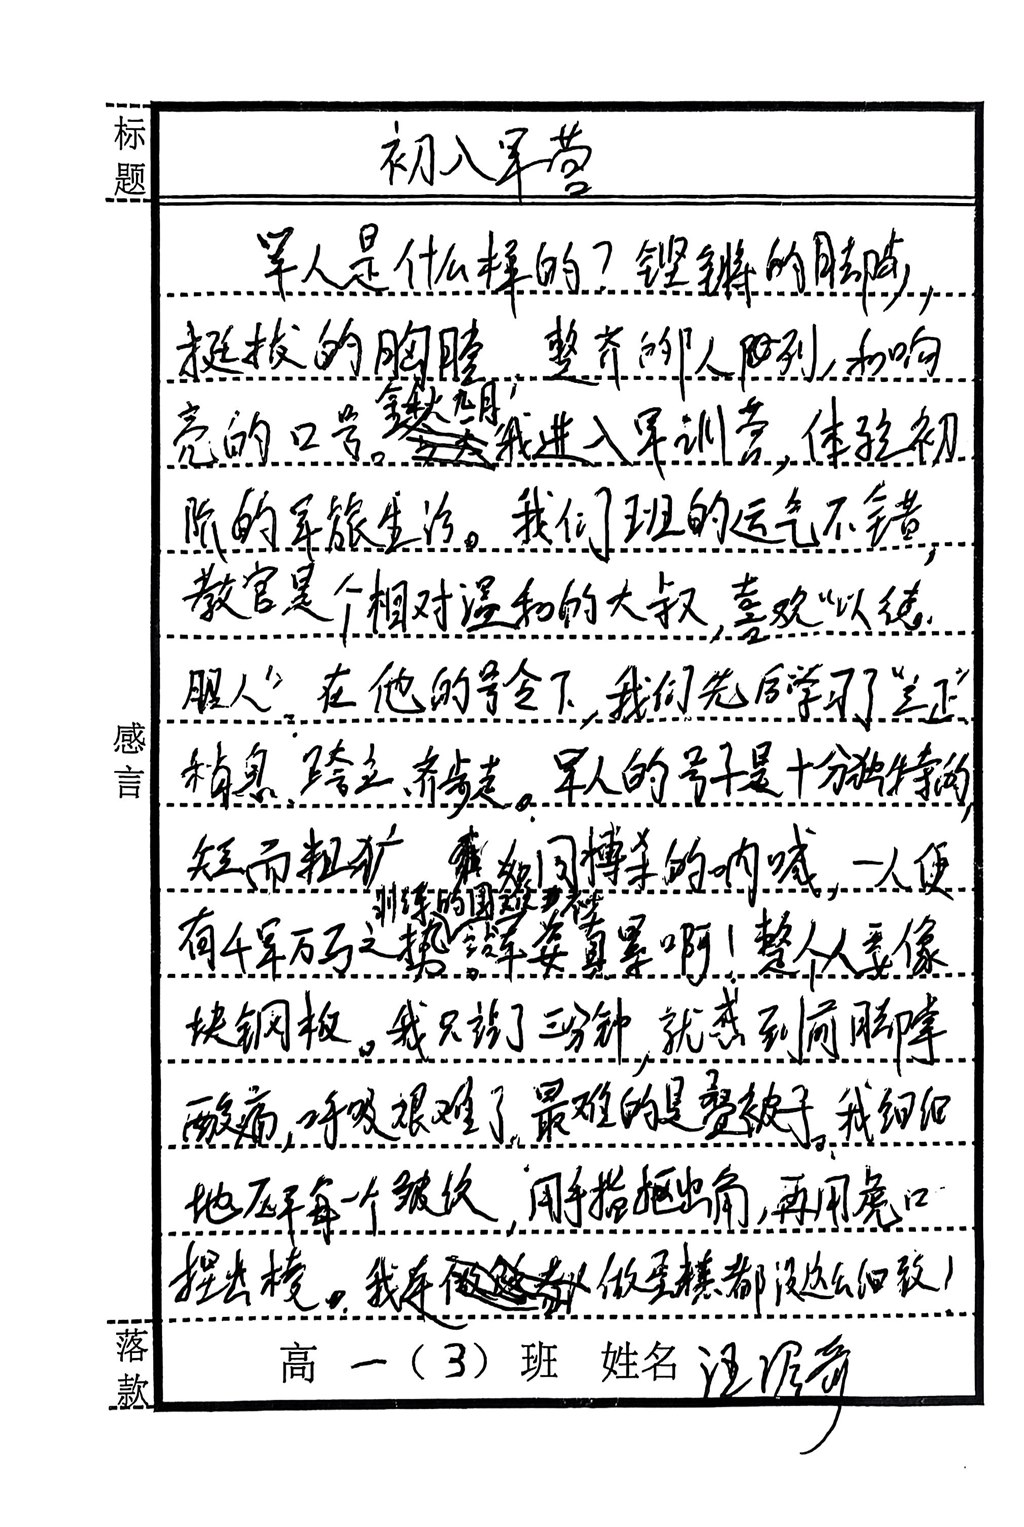 标题
初入军营
军人是什么样的？铿锵的脚步，
挺拔的胸膛，整齐的队列，和响
亮的口号。金秋九月，我进入军训营，体验初
阶的军旅生活。我们班的运气不错，
教官是个相对温和的大叔，喜欢“以德
服人”。在他的号令下，我们先后学习了“立正”
稍息、跨立、齐步走。军人的号子是十分独特的，
短而粗犷，如同搏杀的呐喊，一人便
有千军万马之势。训练的国站军姿真累啊！整个人要像
块钢板。我只站了三分钟，就感到前脚掌
酸痛，呼吸艰难了。最难的是叠被子。我细细
地压平每一个皱纹，用手指抠出角，再用虎口
捏出棱。我连做蛋糕都没这么细致！
感言
落款
高一（3）班 姓名 汪